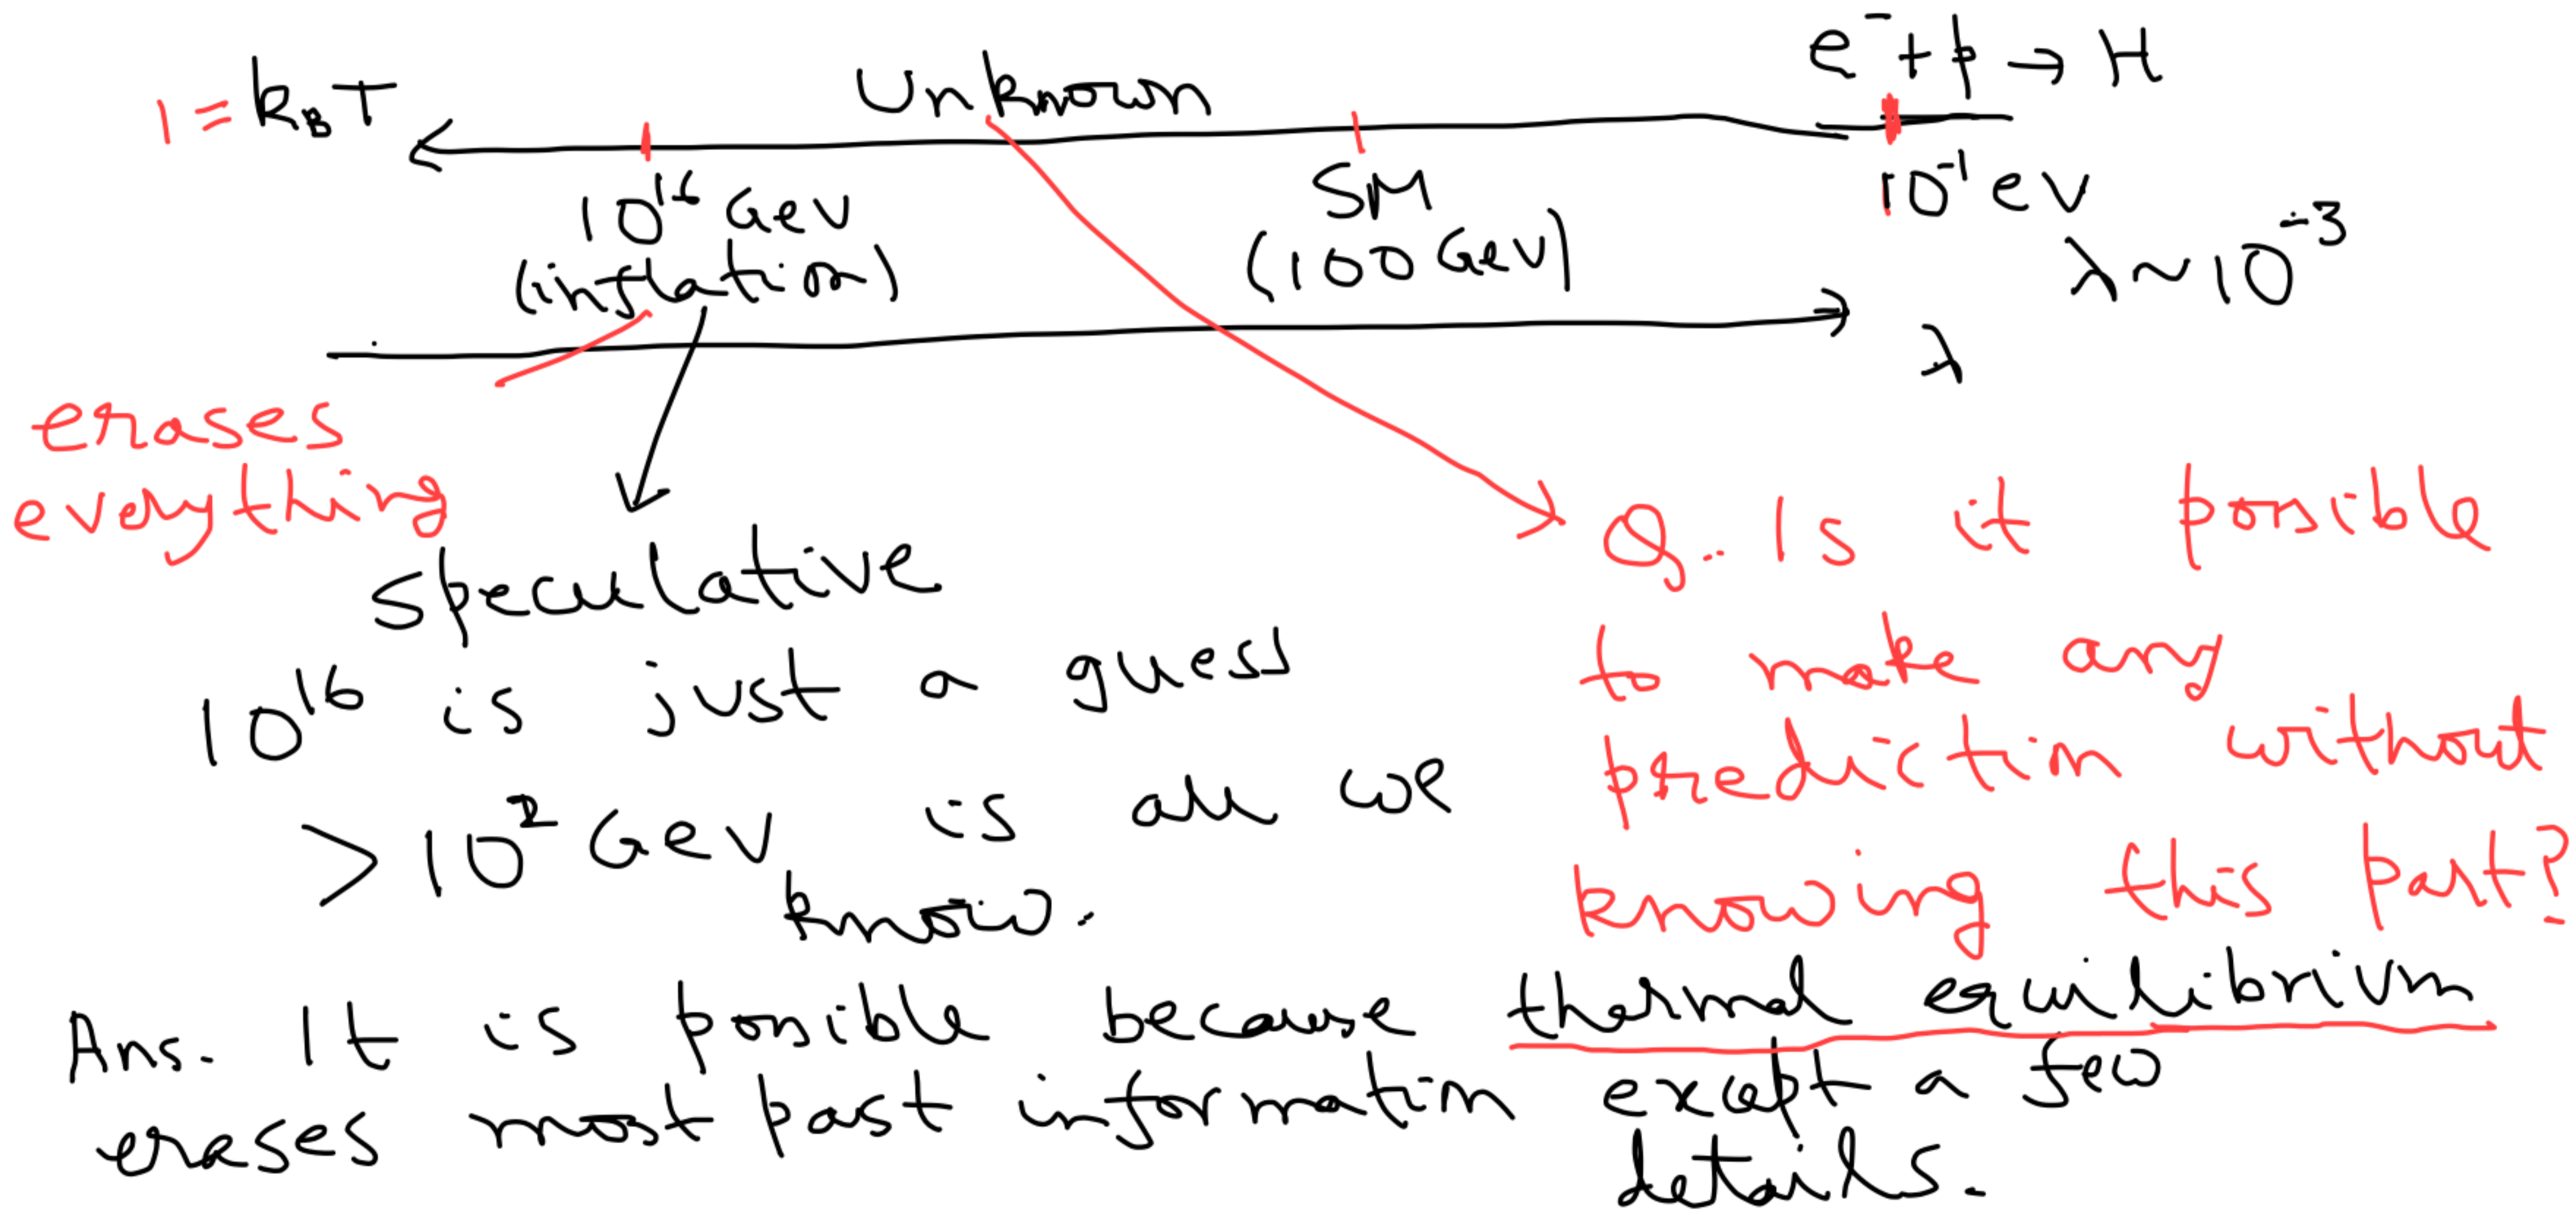 1 = k_B T
Unknown
e⁻ + p → H
10¹⁶ GeV
(inflation)
SM
(100 GeV)
10⁻¹ eV
λ ~ 10⁻³
λ
erases
everything
speculative
10¹⁶ is just a guess
> 10² GeV is all we
know.
Q.. Is it possible
to make any
prediction without
knowing this part?
Ans. It is possible because thermal equilibrium
erases most past information except a few
details.